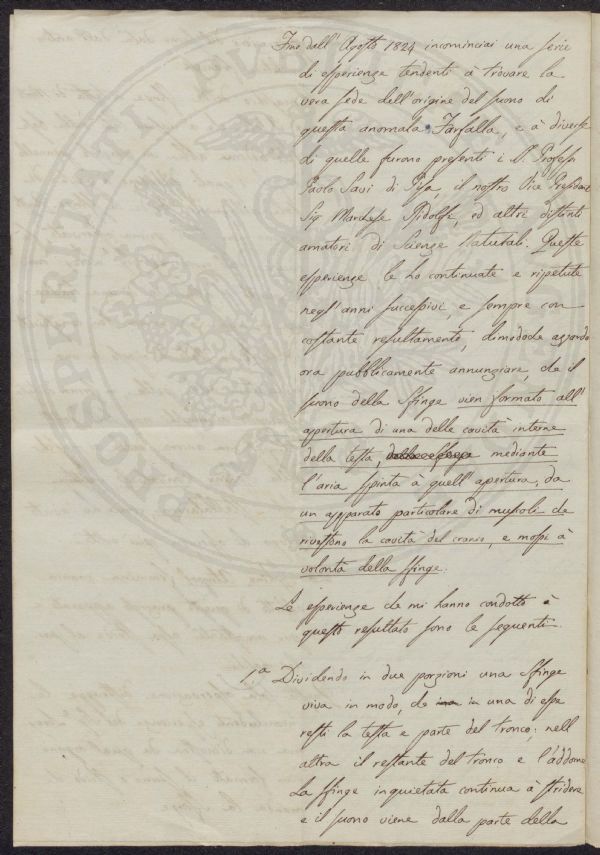 Fino dall' Agosto 1824 incominciai una serie
di esperienze tendenti à trovare la
vera sede dell'origine del suono di
questa anomala Farfalla, e à diverse
di quelle furono presenti i S. Profess
Paolo Savi di Pisa, il nostro Vice Presidente
Sig Marchese Ridolfi, ed altri distinti
amatori di Scienze Naturali. Queste
esperienze le ho continuate e ripetute
negl'anni successivi, e sempre con
costante resultamento, dimodoche azzardo
ora pubblicamente annunziare, che il
suono della Sfinge vien formato all'
apertura di una delle cavità interne
della testa, mediante
l'aria spinta a quell'apertura, da
un apparato particolare di muscoli che
rivestono la cavità del cranio, e mossi à
volontà della sfinge.
Le esperienze che mi hanno condotto à
questo resultato sono le seguenti
1a Dividendo in due porzioni una Sfinge
viva in modo, che in una di esse
resti la testa e parte del tronco; nell
altra il restante del tronco e l'addome
La sfinge inquietata continua à stridere
e il suono viene dalla parte della
PROSPERITATI PUBLI